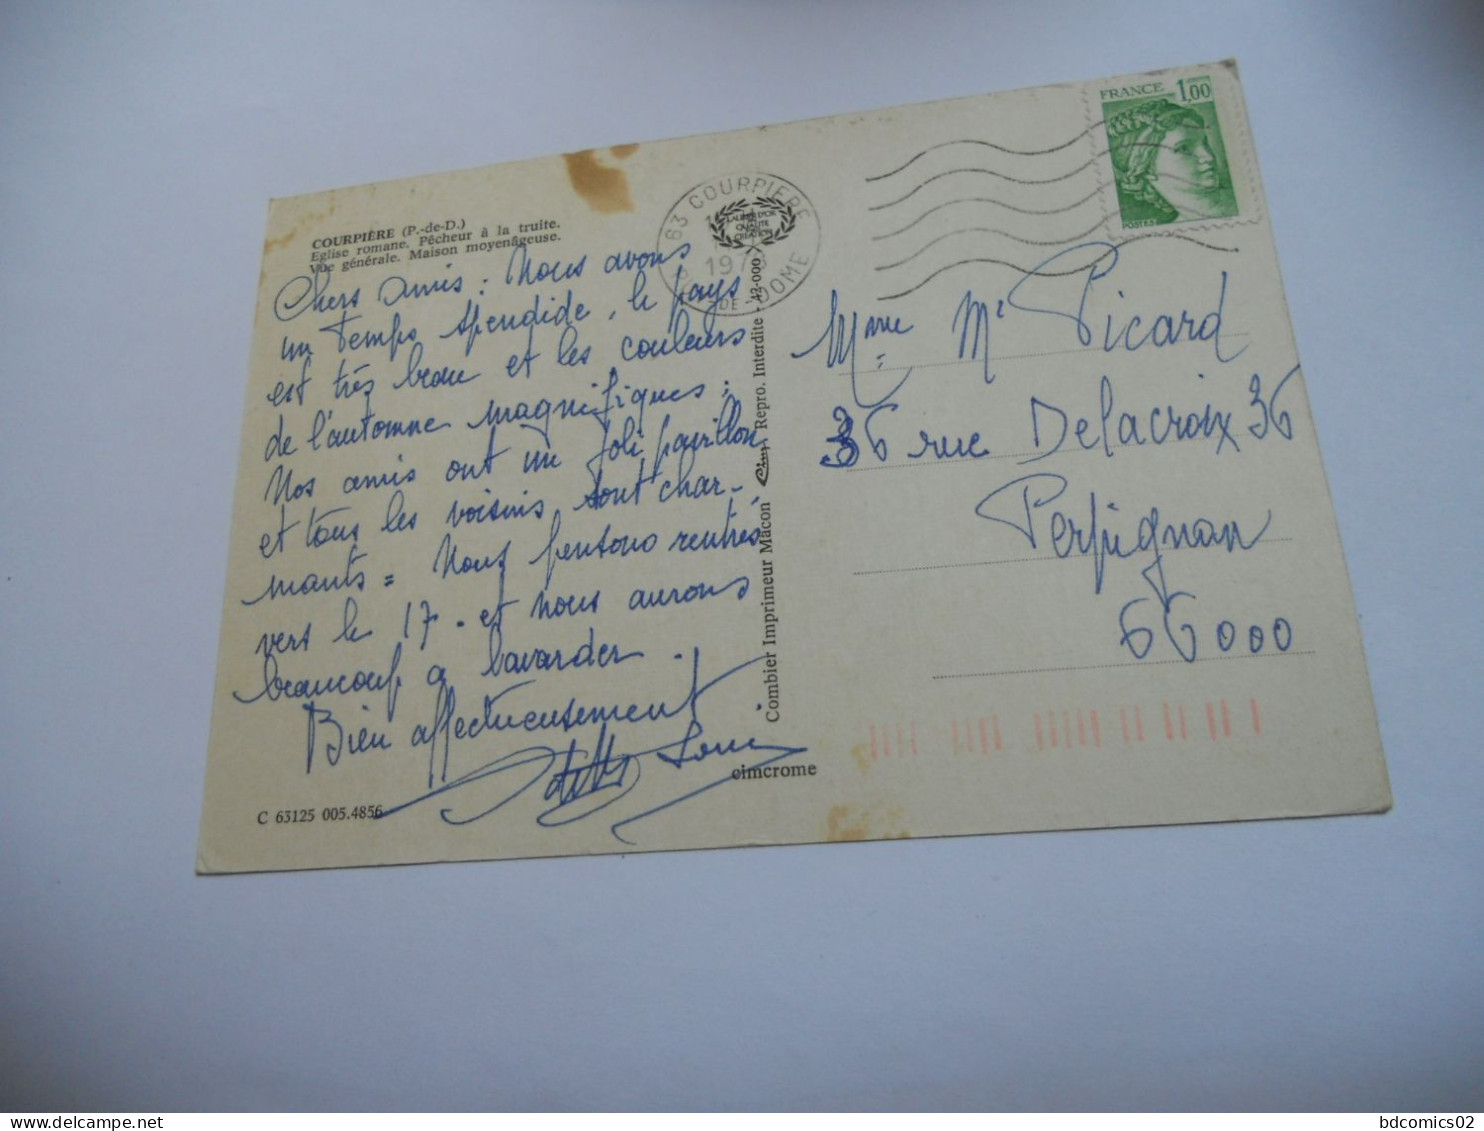 COURPIÈRE (P.-de-D.)
Eglise romane. Pêcheur à la truite.
Vue générale. Maison moyenâgeuse.
Chers amis : Nous avons
un temps splendide, le pays
est très beau et les couleurs
de l'automne magnifiques :
Nos amis ont un joli pavillon
et tous les voisins sont char-
mants = Nous pensons rentrés
vers le 17 - et nous aurons
beaucoup a bavarder.
Bien affectueusement
C 63125 005.4856
cimcrome
Combier Imprimeur Mâcon Cim, Repro. Interdite - 42-000
63 COURPIERE
DE - DOME
FRANCE 1,00
POSTES
Mme Mr Picard
36 rue Delacroix 36
Perpignan
66000
bdcomics02